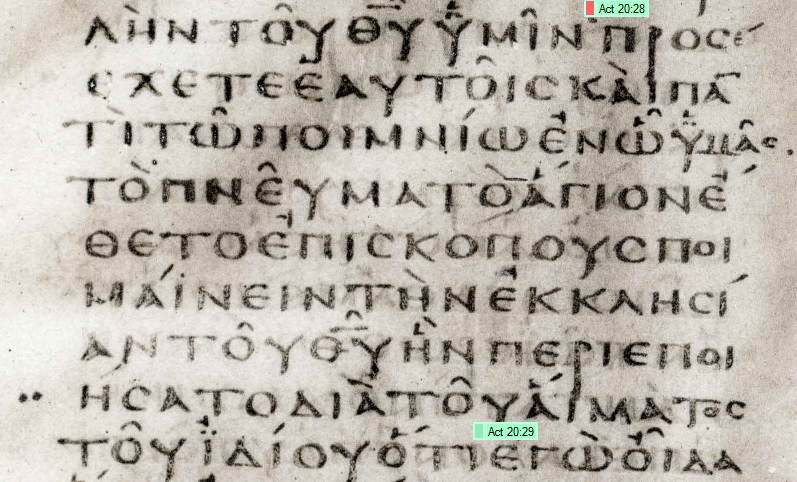 Act 20:28
ΛΗΝΤΟΥΘ̅Υ̅ΥΜΙΝΠΡΟϹε
ΕΧΕΤΕΕΑΥΤΟΙϹΚΑΙΠΑ̅
ΤΙΤΩΠΟΙΜΝΙΩΕΝΩΥΜΑϹ.
ΤΟΠΝΕΥΜΑΤΟΑΓΙΟΝΕ
ΘΕΤΟΕΠΙϹΚΟΠΟΥϹΠΟΙ
ΜΑΙΝΕΙΝΤΗΝΕΚΚΛΗϹΙ
ΑΝΤΟΥΘ̅Υ̅ΗΝΠΕΡΙΕΠΟΙ
ΗϹΑΤΟΔΙΑΤΟΥΑΙΜΑΤΟϹ
Act 20:29
ΤΟΥΪΔΙΟΥΟΤΙΕΓΩΟΙΔΑ